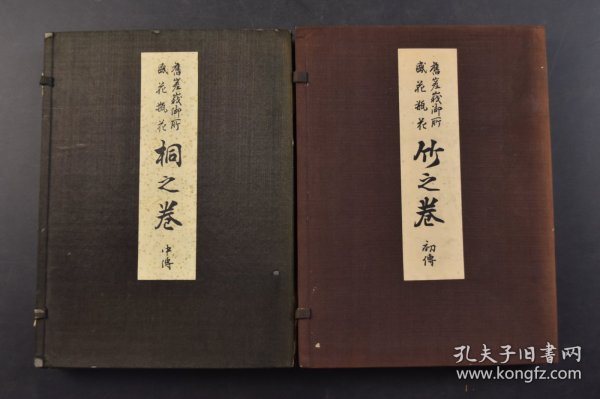 舊嵯峨御所
盛花瓶花
桐之巻
中傳
舊嵯峨御所
盛花瓶花
竹之巻
初傳
孔夫子旧书网
www.kongfz.com